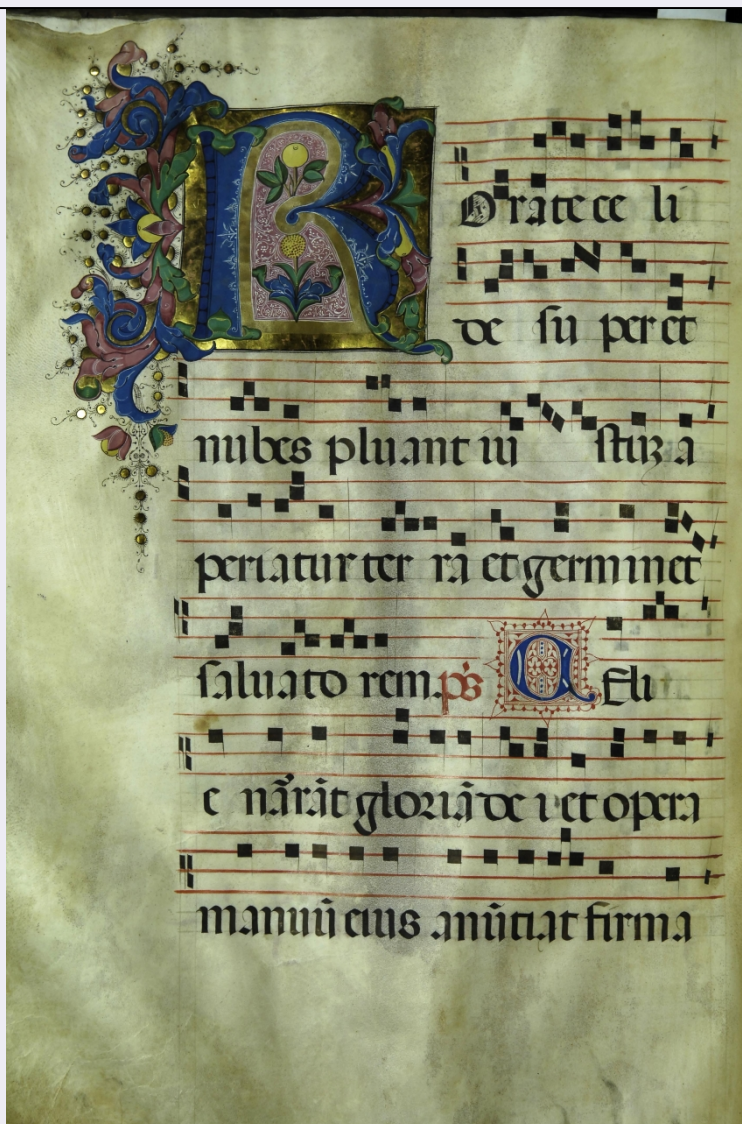 R Orate ce li
de su per et
nubes pluant iu stiz a
periatur ter ra et germinet
saluato rem. p̄s C Eli
e nārāt gloriā de i et opera
manuū eius anūtiat firma